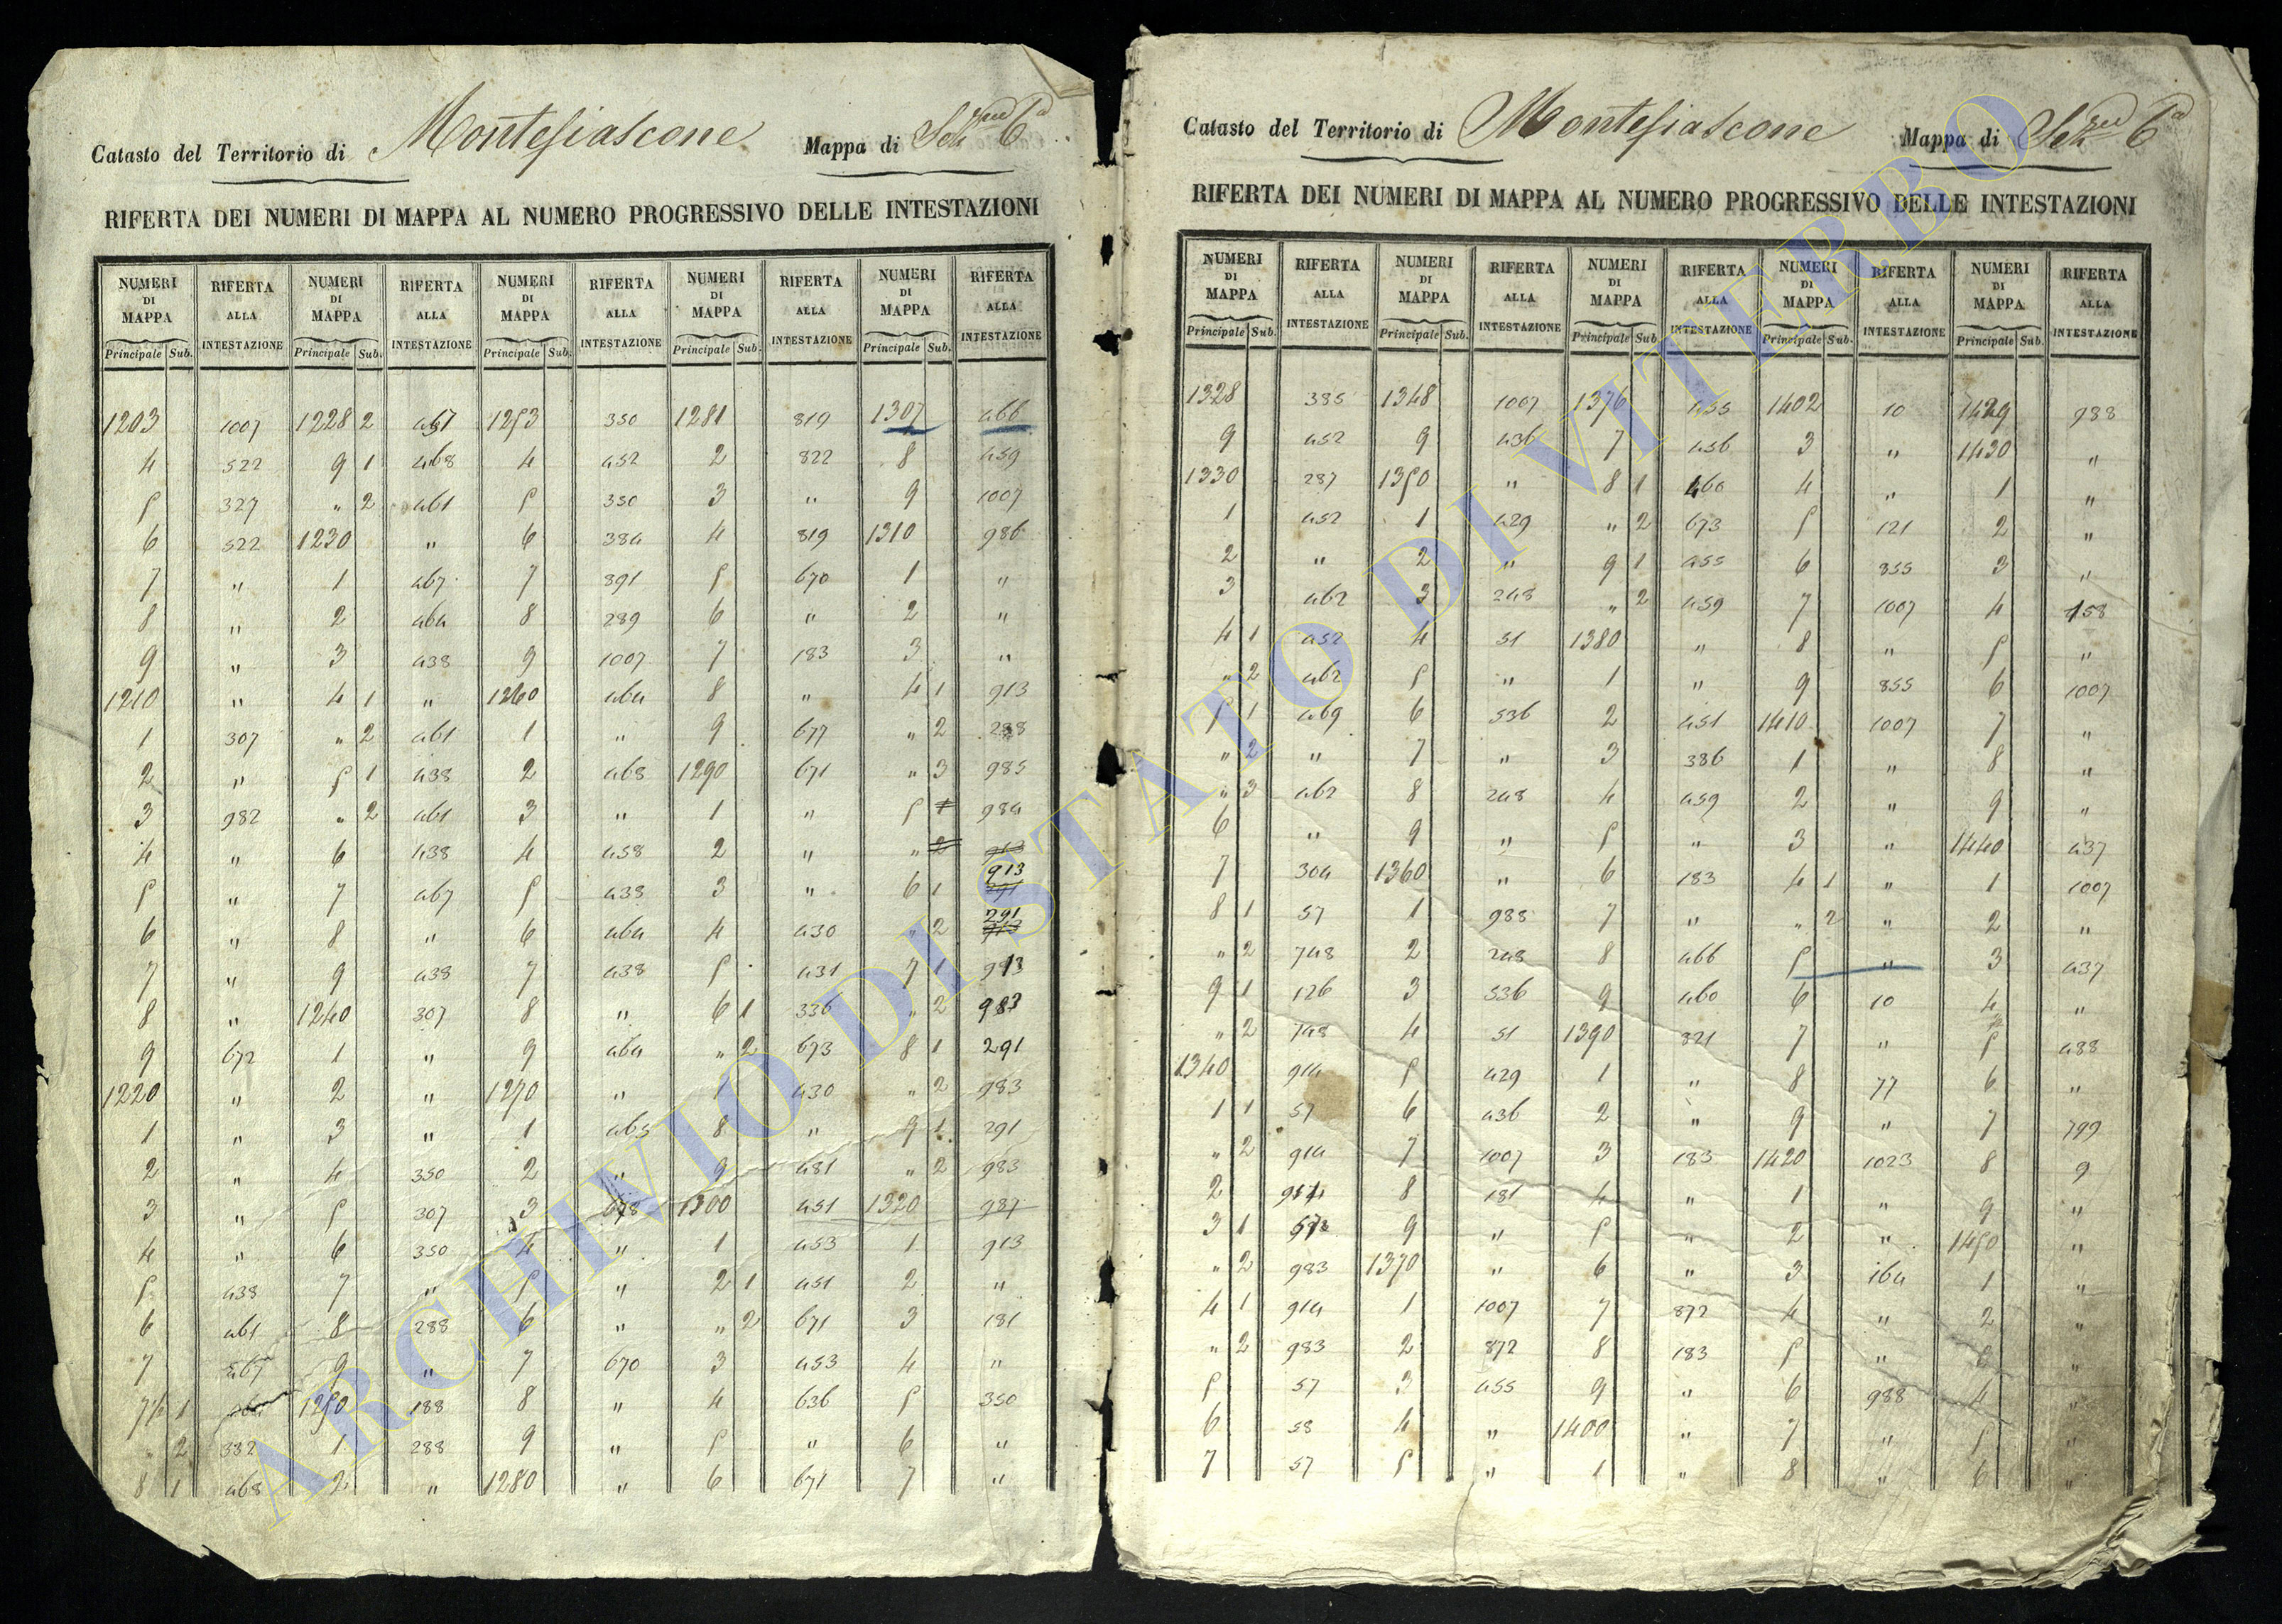 Catasto del Territorio di Montefiascone Mappa di Sez.ne 6.a
RIFERTA DEI NUMERI DI MAPPA AL NUMERO PROGRESSIVO DELLE INTESTAZIONI
NUMERI RIFERTA NUMERI RIFERTA NUMERI RIFERTA NUMERI RIFERTA NUMERI RIFERTA
DI ALLA DI ALLA DI ALLA DI ALLA DI ALLA
MAPPA INTESTAZIONE MAPPA INTESTAZIONE MAPPA INTESTAZIONE MAPPA INTESTAZIONE MAPPA INTESTAZIONE
Principale Sub. Principale Sub. Principale Sub. Principale Sub. Principale Sub.
1203 1007 1228 2 467 1253 350 1281 819 1307 466
4 522 9 1 468 4 452 2 822 8 459
5 327 " 2 461 5 350 3 " 9 1007
6 522 1230 " 6 384 4 819 1310 986
7 " 1 467 7 891 5 670 1 "
8 " 2 464 8 289 6 " 2 "
9 " 3 438 9 1007 7 183 3 "
1210 " 4 1 " 1260 464 8 " 4 1 913
1 307 " 2 461 1 " 9 677 " 2 288
2 " 5 1 438 2 468 1290 671 " 3 985
3 982 " 2 461 3 " 1 " 5 1 984
4 " 6 438 4 458 2 " " 2 913
5 " 7 467 5 438 3 " 6 1 913 291
6 " 8 " 6 464 4 430 " 2 291 913
7 " 9 438 7 438 5 431 7 1 913
8 " 1240 307 8 " 6 1 336 " 2 983
9 672 1 " 9 464 " 2 673 8 1 291
1220 " 2 " 1270 " 7 430 " 2 983
1 " 3 " 1 465 8 " 9 1 291
2 " 4 350 2 " 9 481 " 2 983
3 " 5 307 3 678 1300 451 1320 987
4 " 6 350 4 " 1 453 1 913
5 438 7 " 5 " 2 1 451 2 "
6 461 8 288 6 " " 2 671 3 181
7 467 9 " 7 670 3 453 4 "
7½ 1 1250 188 8 " 4 636 5 350
" 2 332 1 288 9 " 5 " 6 "
8 1 468 2 " 1280 " 6 671 7 "
Catasto del Territorio di Montefiascone Mappa di Sez.ne 6.a
RIFERTA DEI NUMERI DI MAPPA AL NUMERO PROGRESSIVO DELLE INTESTAZIONI
NUMERI RIFERTA NUMERI RIFERTA NUMERI RIFERTA NUMERI RIFERTA NUMERI RIFERTA
DI ALLA DI ALLA DI ALLA DI ALLA DI ALLA
MAPPA INTESTAZIONE MAPPA INTESTAZIONE MAPPA INTESTAZIONE MAPPA INTESTAZIONE MAPPA INTESTAZIONE
Principale Sub. Principale Sub. Principale Sub. Principale Sub. Principale Sub.
1328 385 1348 1007 1376 455 1402 10 1429 988
9 452 9 436 7 456 3 " 1430 "
1330 287 1350 " 8 1 460 4 " 1 "
1 452 1 429 " 2 673 5 121 2 "
2 " 2 " 9 1 455 6 855 3 "
3 462 3 248 " 2 459 7 1007 4 158
4 1 452 4 51 1380 " 8 " 5 "
" 2 462 5 " 1 " 9 855 6 1007
5 1 469 6 536 2 451 1410 1007 7 "
" 2 " 7 " 3 386 1 " 8 "
" 3 462 8 248 4 459 2 " 9 "
6 " 9 " 5 " 3 " 1440 437
7 304 1360 " 6 183 4 1 " 1 1007
8 1 57 1 988 7 " " 2 " 2 "
" 2 748 2 248 8 466 5 " 3 437
9 1 126 3 536 9 460 6 10 4 "
" 2 748 4 51 1390 821 7 " 5 488
1340 914 5 429 1 " 8 77 6 "
1 1 57 6 436 2 " 9 " 7 799
" 2 914 7 1007 3 183 1420 1023 8 9
2 914 8 181 4 " 1 " 9 "
3 1 673 9 " 5 " 2 " 1450 "
" 2 983 1370 " 6 " 3 164 1 "
4 1 914 1 1007 7 872 4 " 2 "
" 2 983 2 872 8 183 5 " "
5 57 3 455 9 " 6 988 4 "
6 58 4 " 1400 " 7 " 5 "
7 57 5 " 1 " 8 " 6 "
ARCHIVIO DI STATO DI VITERBO